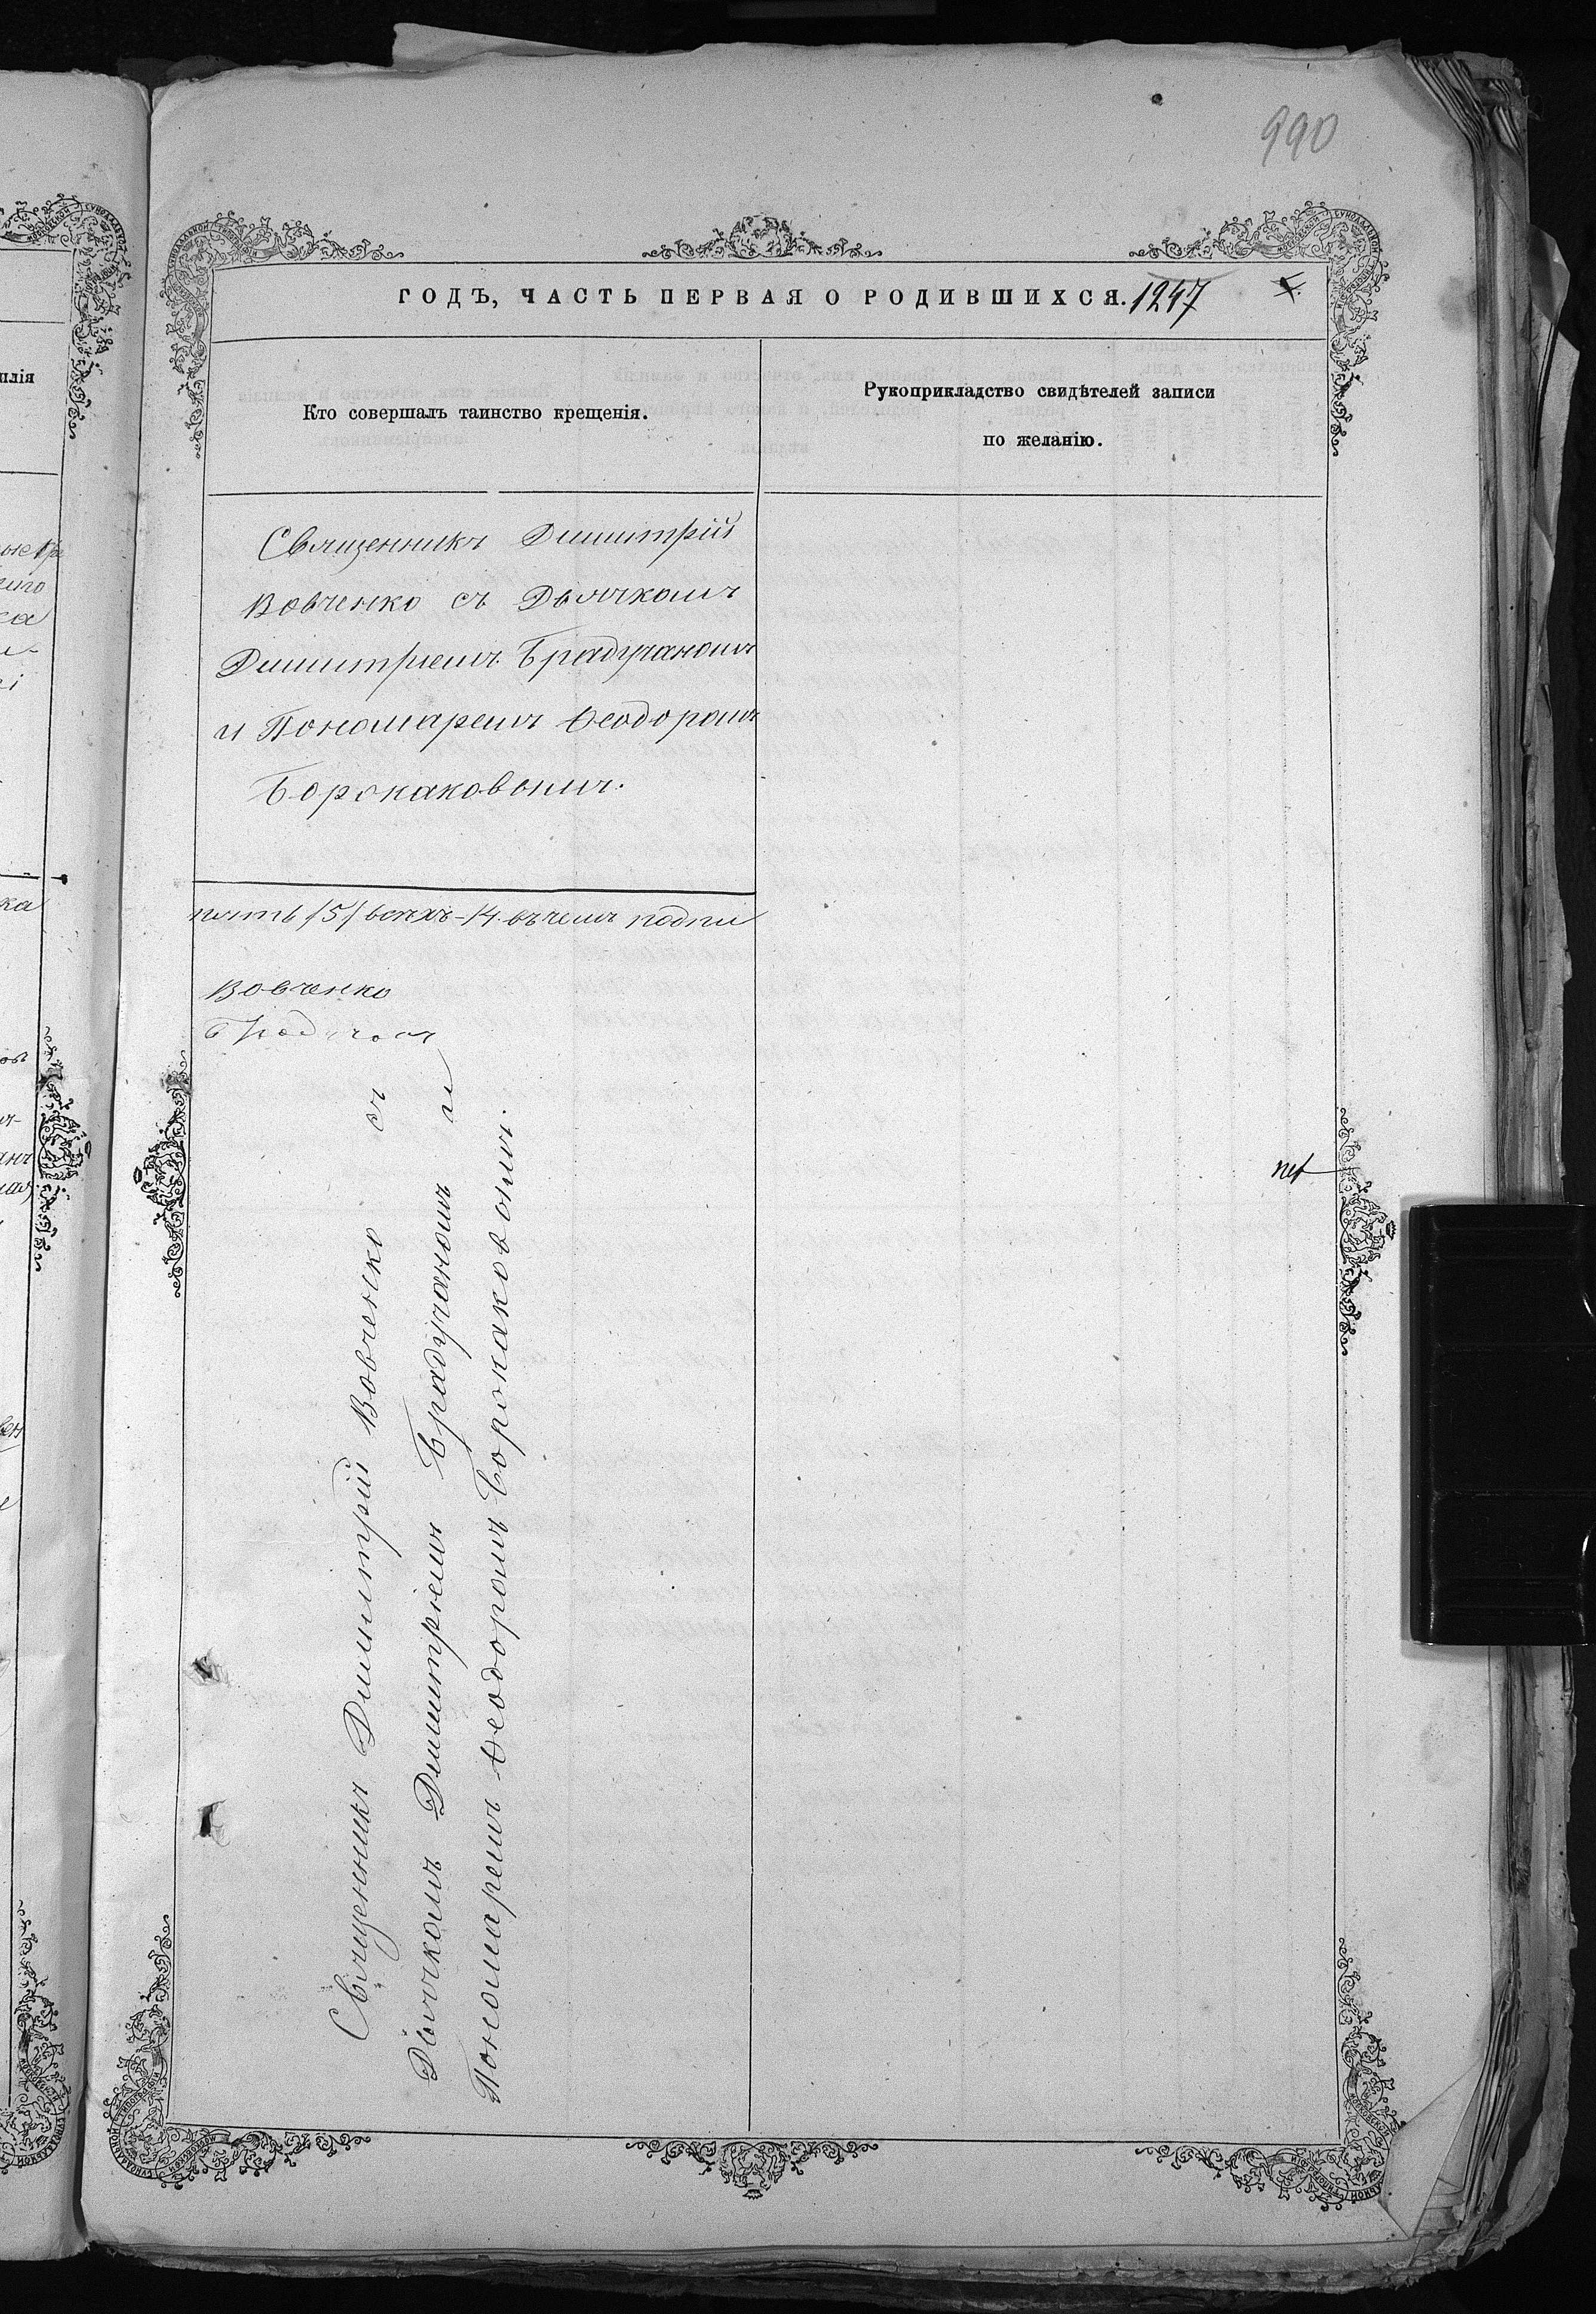 990
ГОДЪ, ЧАСТЬ ПЕРВАЯ О РОДИВШИХСЯ. 1247
Кто совершалъ таинство крещенія.
Рукоприкладство свидѣтелей записи
по желанію.
Священникъ Димитрій
Вовченко съ Дьячкомъ
Димитріемъ Брадучаномъ
и Пономаремъ Ѳеодоромъ
Борокаковымъ.
пять /5/ всѣхъ - 14. въ чемъ подпи
Вовченко
Священникъ Димитрій Вовченко съ
Дьячкомъ Димитріемъ Брадучаномъ и
Пономаремъ Ѳеодоромъ Борокаковымъ.